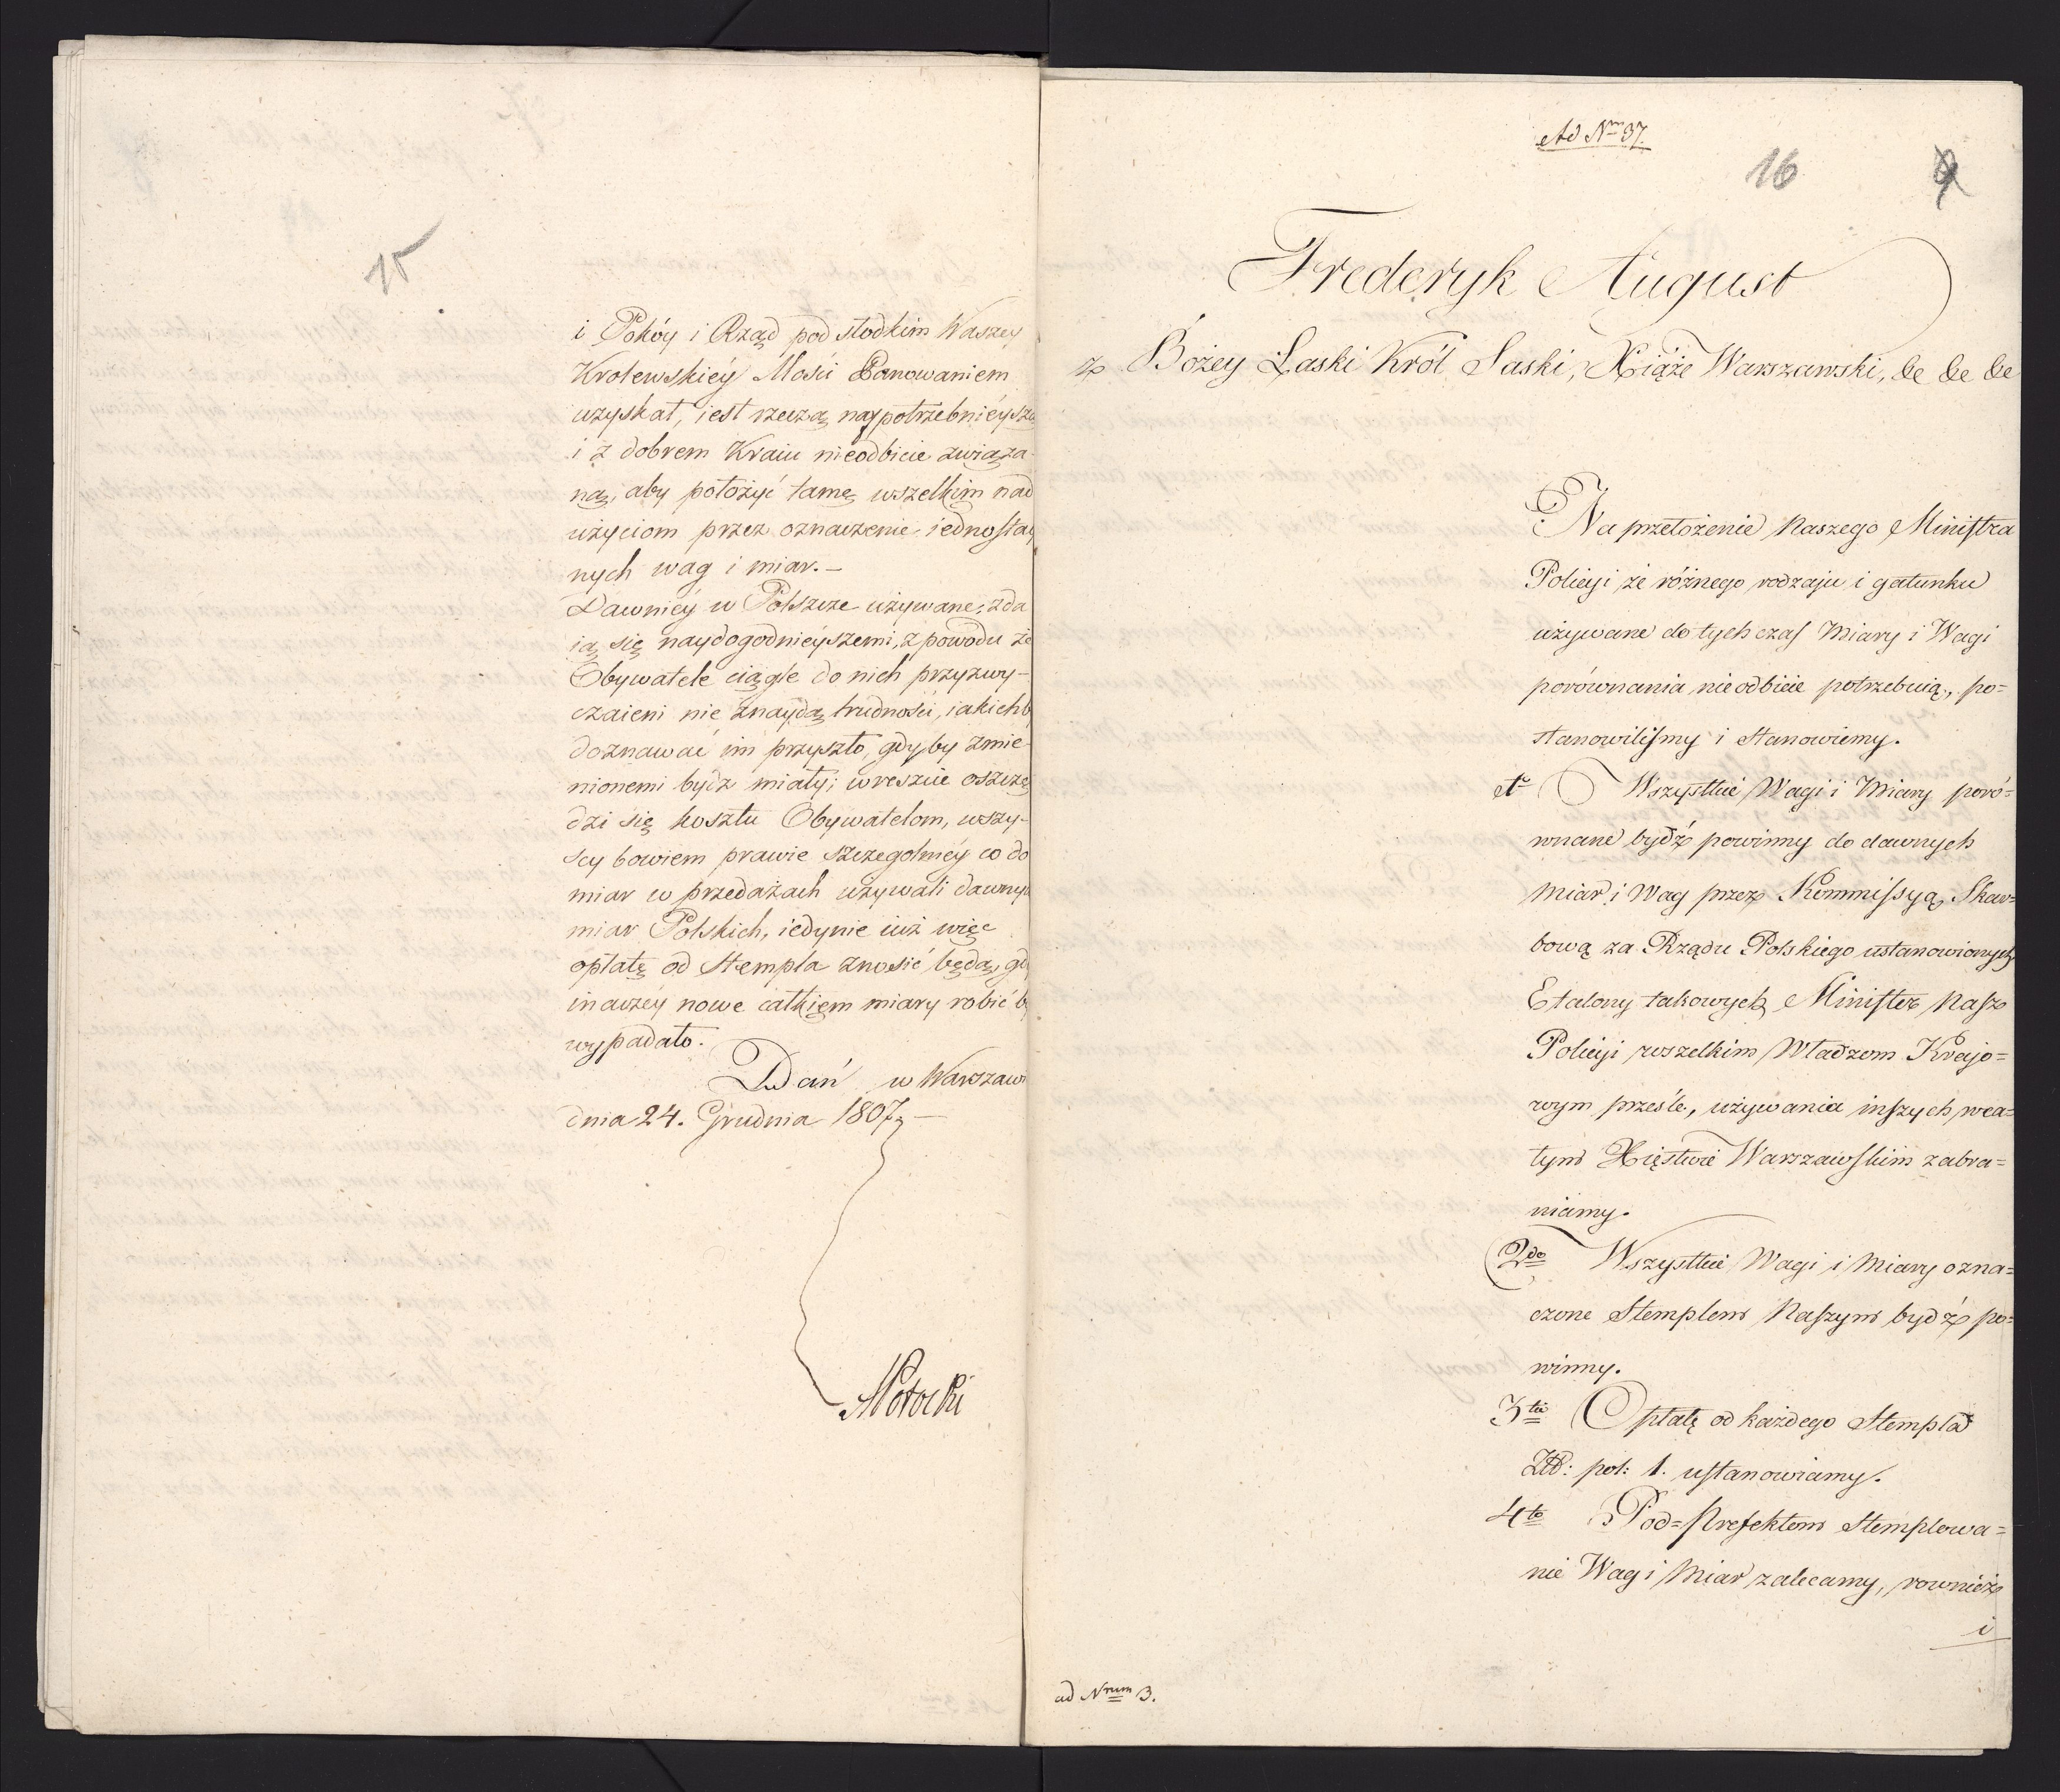 15
i Pokóy i Rząd pod słodkim Waszey
Krolewskiéy Mości Panowaniem
uzyskał, iest rzeczą naypotrzebniéyszą
i z dobrem Kraiu nieodbicie związa
ną, aby położyć tamę wszelkim nad
użyciom przez oznaczenie iednostay
nych wag i miar. –
Dawniéy w Polszcze używane, zda
ią się naydogodnieyszemi, z powodu że
Obywatele ciągle do nich przyzwy-
czaieni nie znaydą trudności, iakichb
doznawać im przyszło, gdyby zmie
nionemi bydź miały; wreszcie oszczę
dzi się kosztu Obywatelom, wszy-
scy bowiem prawie szczegolniéy co do
miar w przedażach używali dawnych
miar Polskich, iedynie iuż więc
opłatę od Stempla znosić będą, gdy
inaczéy nowe całkiem miary robić by
wypadało.
Dań w Warszawi
dnia 24. Grudnia 1807 –
Potocki
Ad Nrm 37.
16
Frederyk August
z Bożey Łaski Król Saski, Xiąże Warszawski, &c &c &c
Na przełożenie Naszego Ministra
Policyi że różnego rodzaju i gatunku
używane do tych czas Miary i Wagi
porównania nieodbicie potrzebuią, po=
stanowiliśmy i Stanowiemy.
Wszystkie Wagi i Miary poró=
wnane bydź powinny do dawnych
Miar i Wag przez Kommissyą Skar=
bową za Rządu Polskiego ustanowionych
Etalony takowych Minister Nasz
Policyi wszelkim Władzom Krajo=
wym prześle, używania inszych w ca=
łym Xięstwie Warszawskim zabra=
niamy.
2do Wszystkie Wagi i Miary ozna=
czone Stemplem Naszym bydź po=
winny.
3tio Opłatę od każdego Stempla
Złł: pol: 1. ustanowiamy.
4to Pod=Prefektom Stemplowa=
nie Wag i Miar zalecamy, rownież
i
ad Nrum 3.